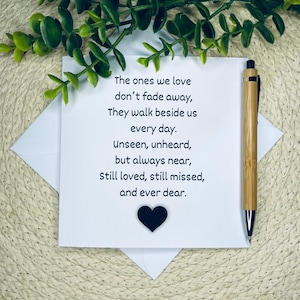 The ones we love
don't fade away,
They walk beside us
every day.
Unseen, unheard,
but always near,
Still loved, still missed,
and ever dear.